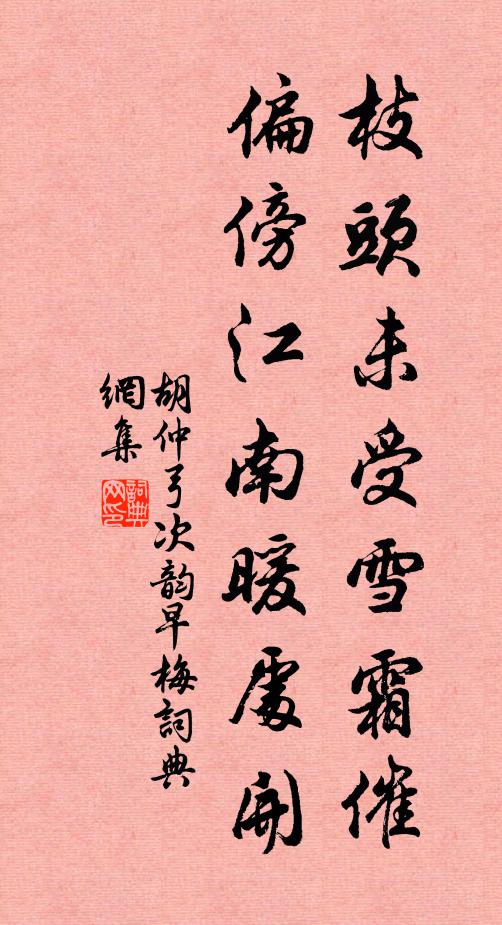 枝頭未受雪霜催
偏傍江南暖處開
胡仲弓次韵早梅詞典
網集
詞典
网印